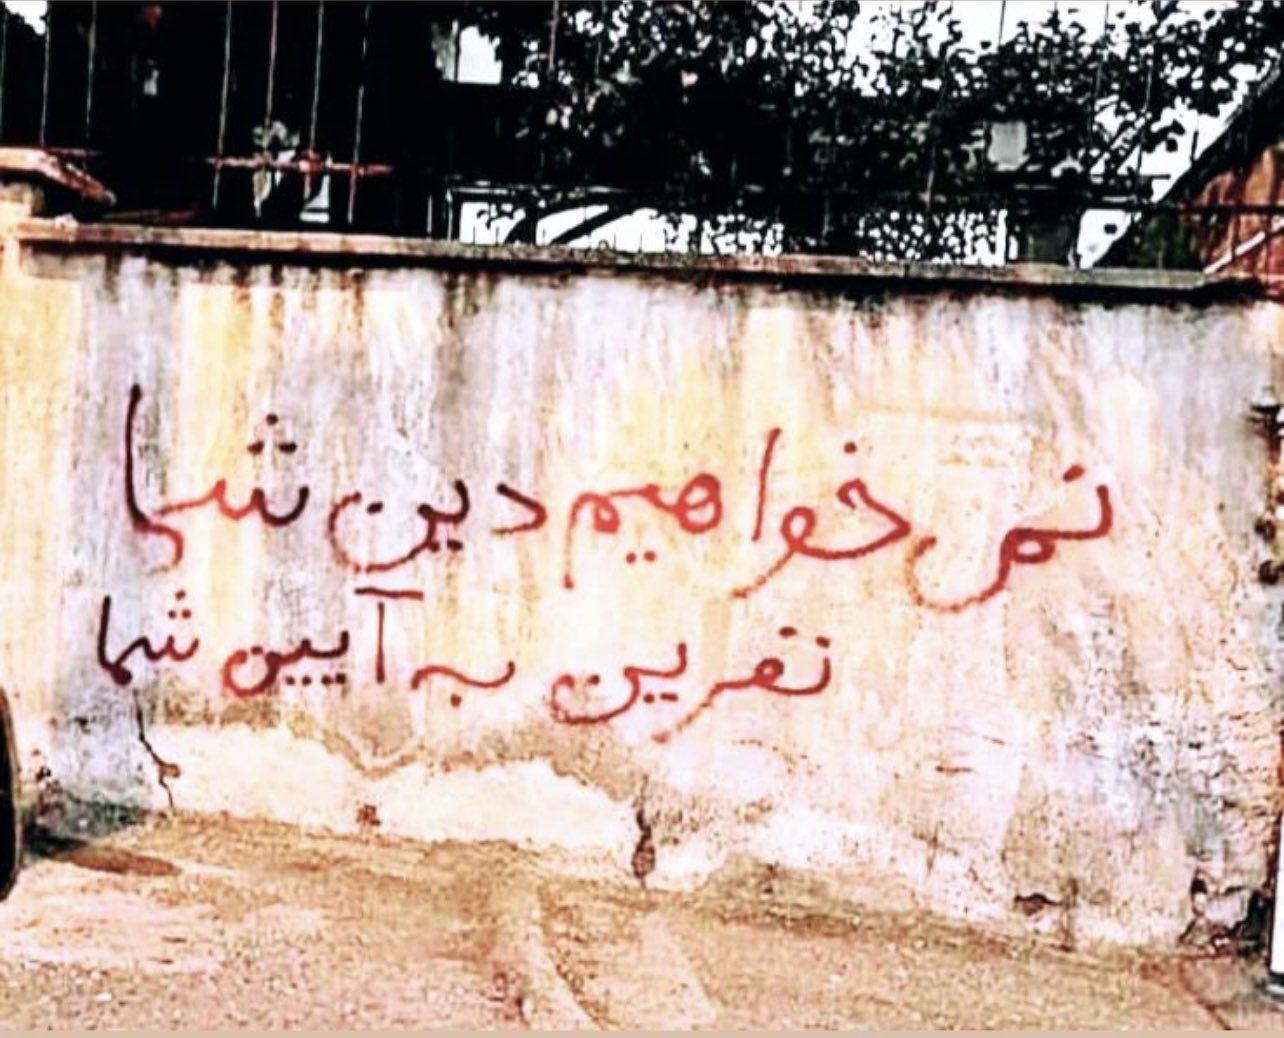 نمی خواهیم دین شما
نفرین به آیین شما